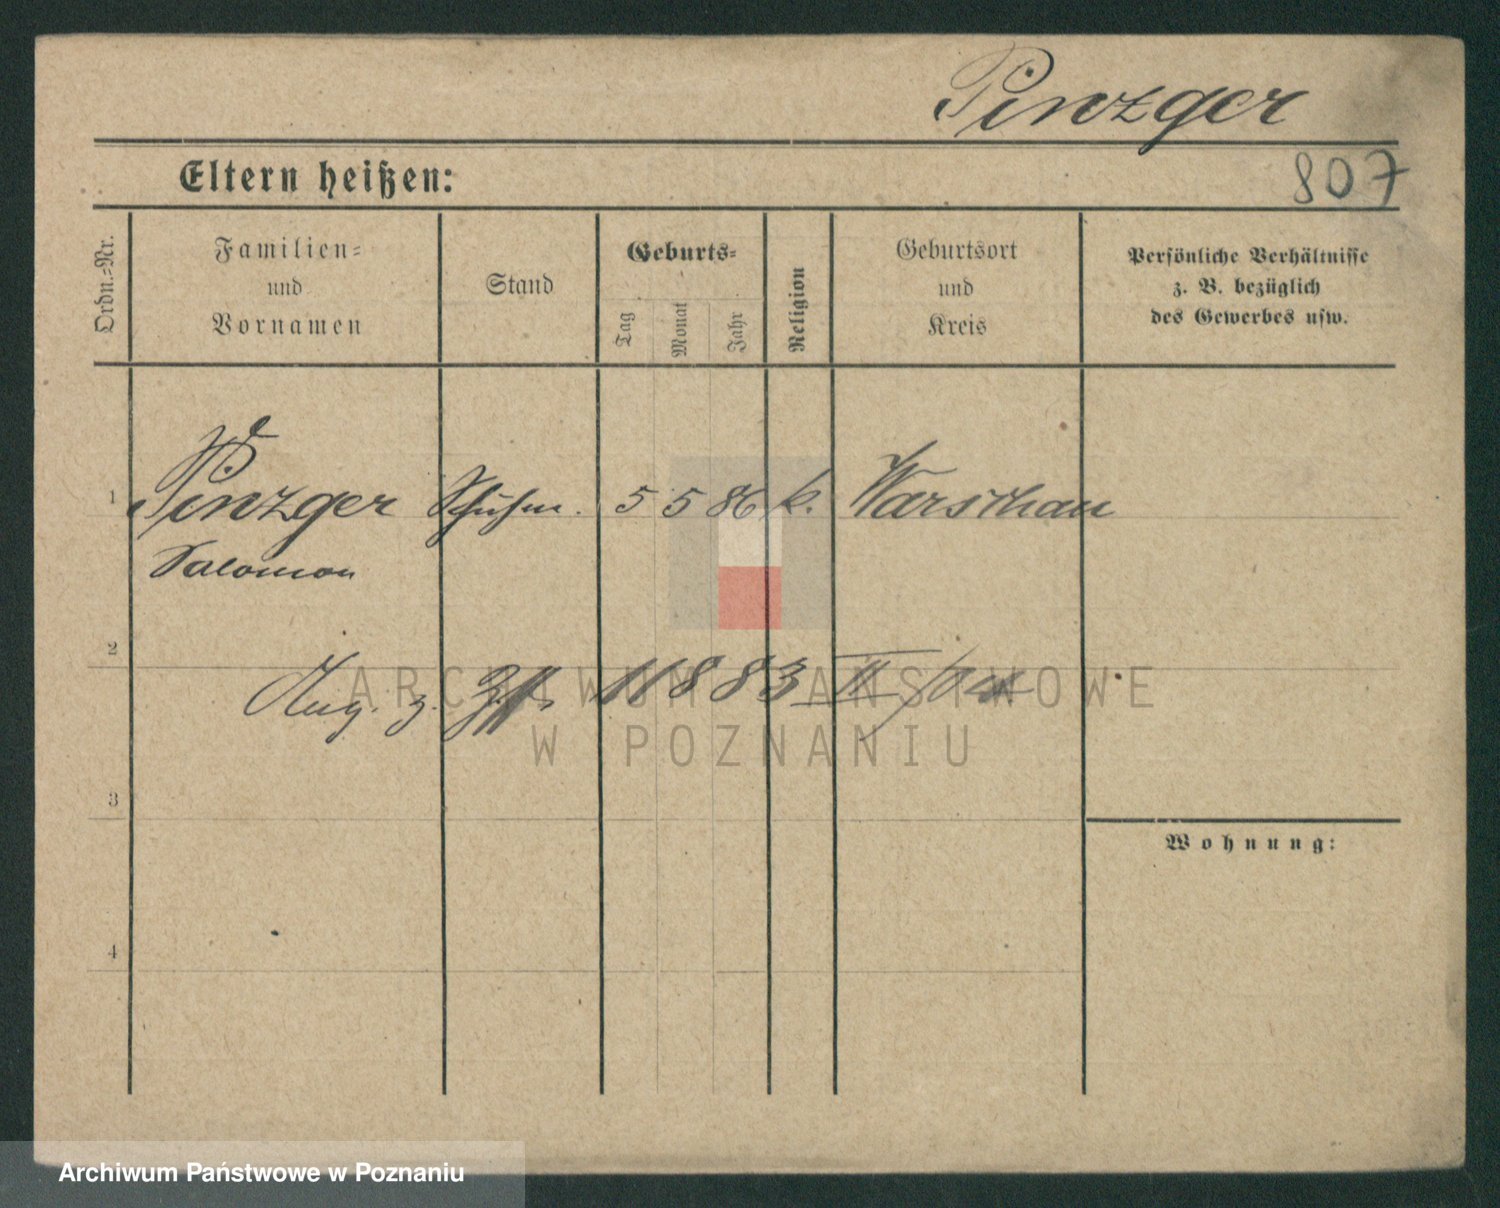 Pinzger
Eltern heißen:
807
Ordn.-Nr.
Familien-
und
Vornamen
Stand
Geburts-
Tag
Monat
Jahr
Religion
Geburtsort
und
Kreis
Persönliche Verhältnisse
z. B. bezüglich
des Gewerbes usw.
1 Pinzger Schuhm. 5 5 86 k. Warschau
Salomon
2
Aug. z. 11 8 83 II
ARCHIWUM PAŃSTWOWE
W POZNANIU
3
Wohnung:
4
Archiwum Państwowe w Poznaniu